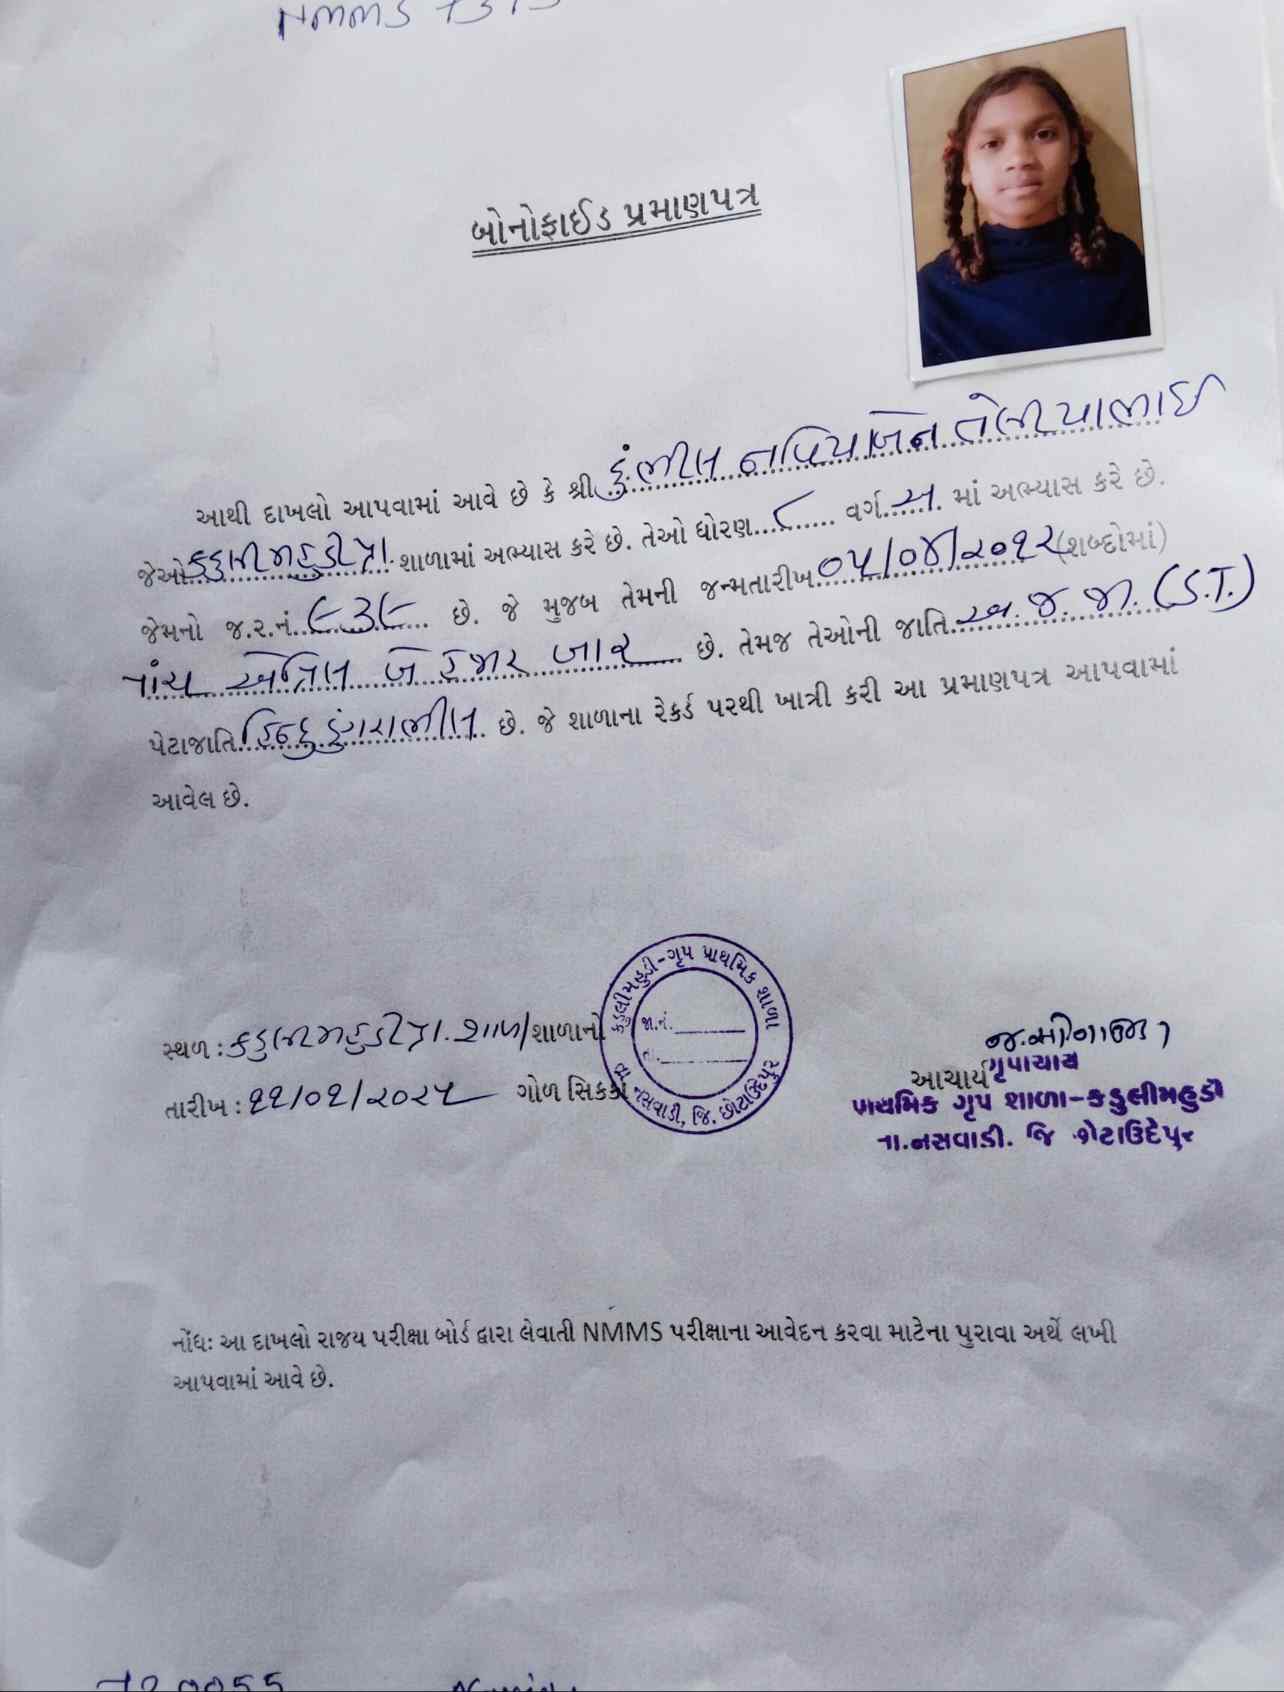 NMMS
બોનોફાઈડ પ્રમાણપત્ર
આથી દાખલો આપવામાં આવે છે કે શ્રી ડુંભીલ નવિયાબેન તેલીયાભાઈ
જેઓ કડુલીમહુડી પ્રા. શાળામાં અભ્યાસ કરે છે. તેઓ ધોરણ ૮ વર્ગ અ માં અભ્યાસ કરે છે.
જેમનો જ.ર.નં. ૯૩૯ છે. જે મુજબ તેમની જન્મતારીખ ૦૫/૦૪/૨૦૧૨ (શબ્દોમાં)
પાંચ એપ્રિલ બે હજાર બાર છે. તેમજ તેઓની જાતિ અ.જ.જા. (S.T.)
પેટાજાતિ હિન્દુ ડુંગરાભીલ છે. જે શાળાના રેકર્ડ પરથી ખાત્રી કરી આ પ્રમાણપત્ર આપવામાં
આવેલ છે.
કડુલીમહુડી-ગૃપ પ્રાથમિક શાળા
જા.નં.
તા.
તા નસવાડી, જિ. છોટાઉદેપુર
સ્થળ : કડુલીમહુડી પ્રા. શાળા/શાળાનો
તારીખ : ૨૨/૦૨/૨૦૨૫ ગોળ સિક્કો
આચાર્ય
ગૃપાચાર્ય
પ્રાથમિક ગૃપ શાળા-કડુલીમહુડી
તા.નસવાડી. જિ છોટાઉદેપુર
નોંધઃ આ દાખલો રાજ્ય પરીક્ષા બોર્ડ દ્વારા લેવાતી NMMS પરીક્ષાના આવેદન કરવા માટેના પુરાવા અર્થે લખી
આપવામાં આવે છે.